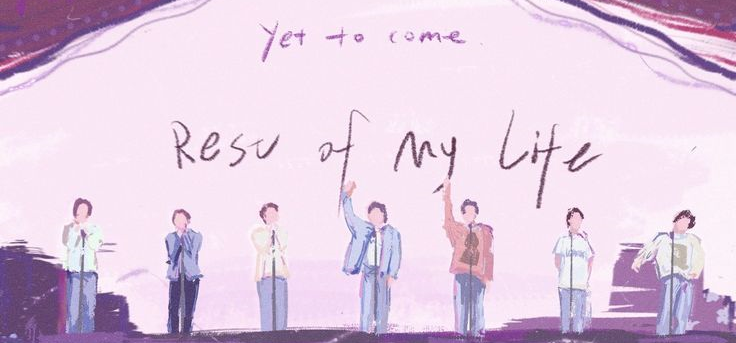 Yet to come
Rest of My Life